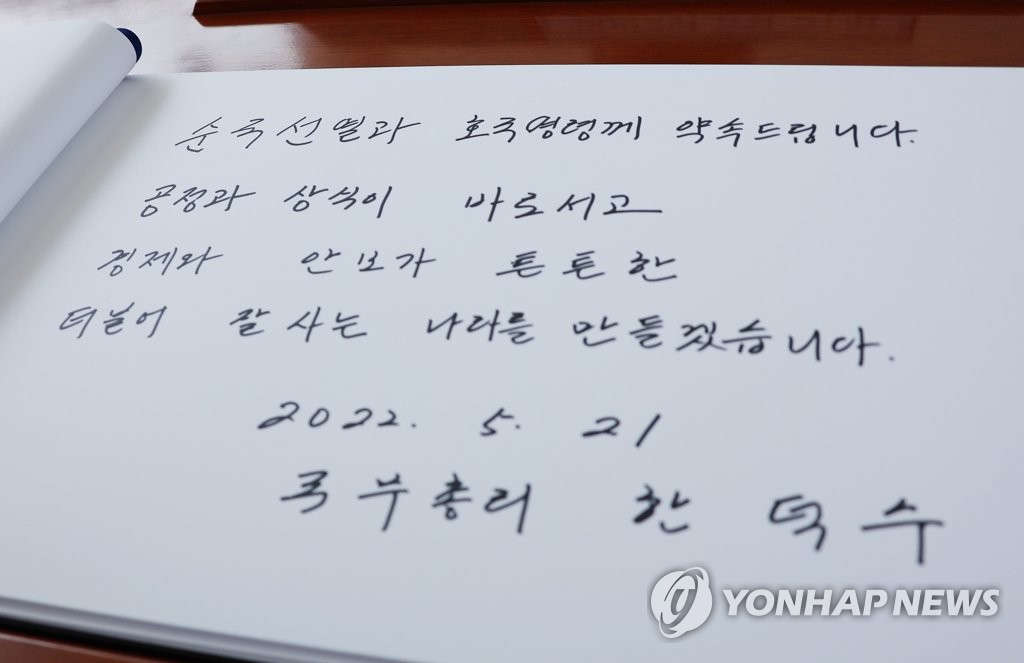 순국선열과 호국영령께 약속드립니다.
공정과 상식이 바로서고
경제와 안보가 튼튼한
더불어 잘 사는 나라를 만들겠습니다.
2022. 5. 21
국무총리 한 덕 수
YONHAP NEWS